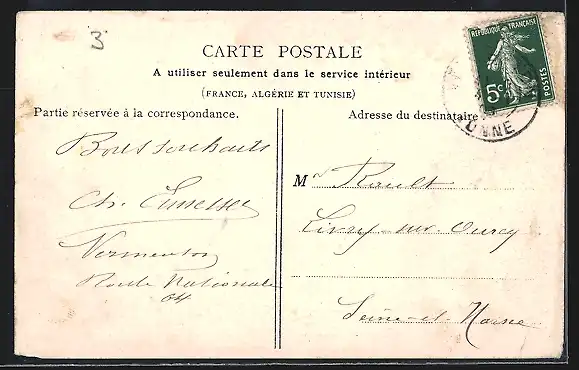 3
CARTE POSTALE
A utiliser seulement dans le service intérieur
(FRANCE, ALGÉRIE ET TUNISIE)
Partie réservée à la correspondance.
Adresse du destinataire
RÉPUBLIQUE FRANÇAISE
5c
POSTES
YONNE
Bons souhaits
Ch.
Vermenton
Route Nationale
64
Mr Rault
Livry sur Ourcq
Seine-et-Marne